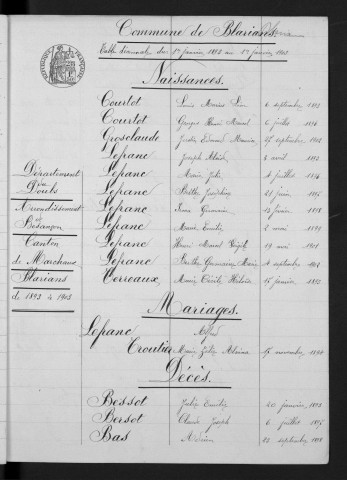 Commune de Blarians
Table décennale du 1er janvier 1893 au 1er janvier 1903
Naissances.
Courtot Louis Marius Léon 6 septembre 1893
Courtot Georges Henri Marcel 6 juillet
Grosclaude Edmond Maurice 27 septembre 1902
Lepane Joseph 5 avril 1893
Lepane Marie 4 juillet 1894
Lepane Berthe Joséphine 21 juin 1895
Lepane Germain 13 janvier 1898
Lepane Marie Emilie 2 mai 1899
Lepane Henri Marcel 19 mai 1901
Lepane Berthe Germaine Marie 4 septembre 1901
Verreaux, Marie Cécile 15 janvier 1893
Département
du
Doubs
Arrondissement
de
Besançon
Canton
de Marchaux
Blarians
de 1893 à 1903
Mariages.
Lepane Alfred
Troutier Marie 15 novembre 1894
Décès.
Bessot Julie Emilie 20 janvier 1893
Bersot Claude Joseph 6 juillet 1895
Bas Adrien 22 septembre 1898